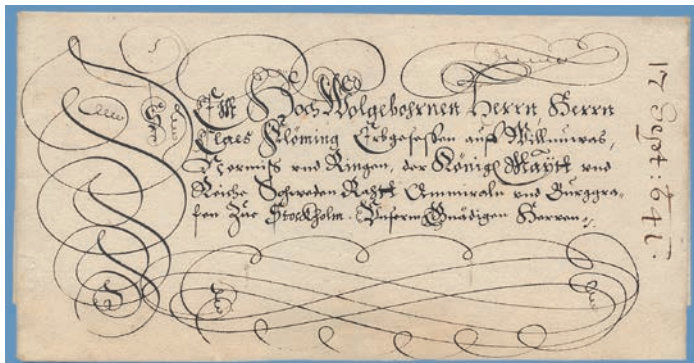 DEM Hoch Wolgebohrnen Herrn, Herrn
Claes Flöming Erbgesessen auff Willnuwas,
Chermiss vnd Ringen, der Königl Maÿtt vnd
Reiche Schweden Rahtt Ammiraln vnd Burggra-
fen Zue Stockholm. Vnserm Gnädigen Herren
17 Sept: 641.